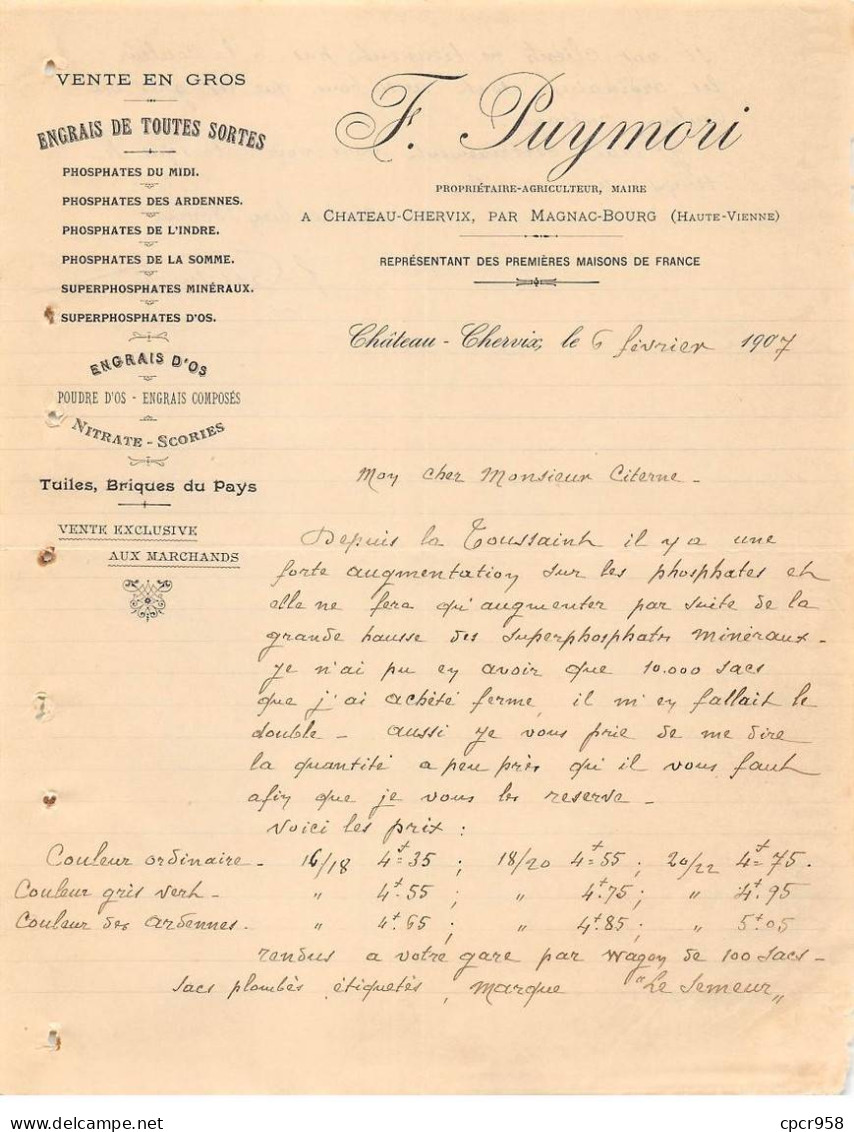 VENTE EN GROS
ENGRAIS DE TOUTES SORTES
PHOSPHATES DU MIDI.
PHOSPHATES DES ARDENNES.
PHOSPHATES DE L'INDRE.
PHOSPHATES DE LA SOMME.
SUPERPHOSPHATES MINÉRAUX.
SUPERPHOSPHATES D'OS.
ENGRAIS D'OS
POUDRE D'OS - ENGRAIS COMPOSÉS
NITRATE - SCORIES
Tuiles, Briques du Pays
VENTE EXCLUSIVE
AUX MARCHANDS
F. Puymori
PROPRIÉTAIRE-AGRICULTEUR, MAIRE
A CHATEAU-CHERVIX, PAR MAGNAC-BOURG (HAUTE-VIENNE)
REPRÉSENTANT DES PREMIÈRES MAISONS DE FRANCE
Château-Chervix, le 6 février 1907
Moy cher Monsieur Citerne -
Depuis la Toussaint il y a une
forte augmentation sur les phosphates et
elle ne fera qu'augmenter par suite de la
grande hausse des superphosphates minéraux -
Je n'ai pu ey avoir que 10.000 sacs
que j'ai achété ferme, il m'ey fallait le
double - aussi je vous prie de me dire
la quantité a peu près qu'il vous faut
afiy que je vous les reserve -
Voici les prix :
Couleur ordinaire - 16/18 4f=35 ; 18/20 4f=55 ; 20/22 4f=75.
Couleur gris vert - " 4f.55 ; " 4f.75 ; " 4f.95
Couleur des ardennes - " 4f.65 ; " 4f.85 ; " 5f.05
rendus a votre gare par wagoy de 100 sacs -
sacs plombés étiquetés, marque "Le Semeur"
cpcr958